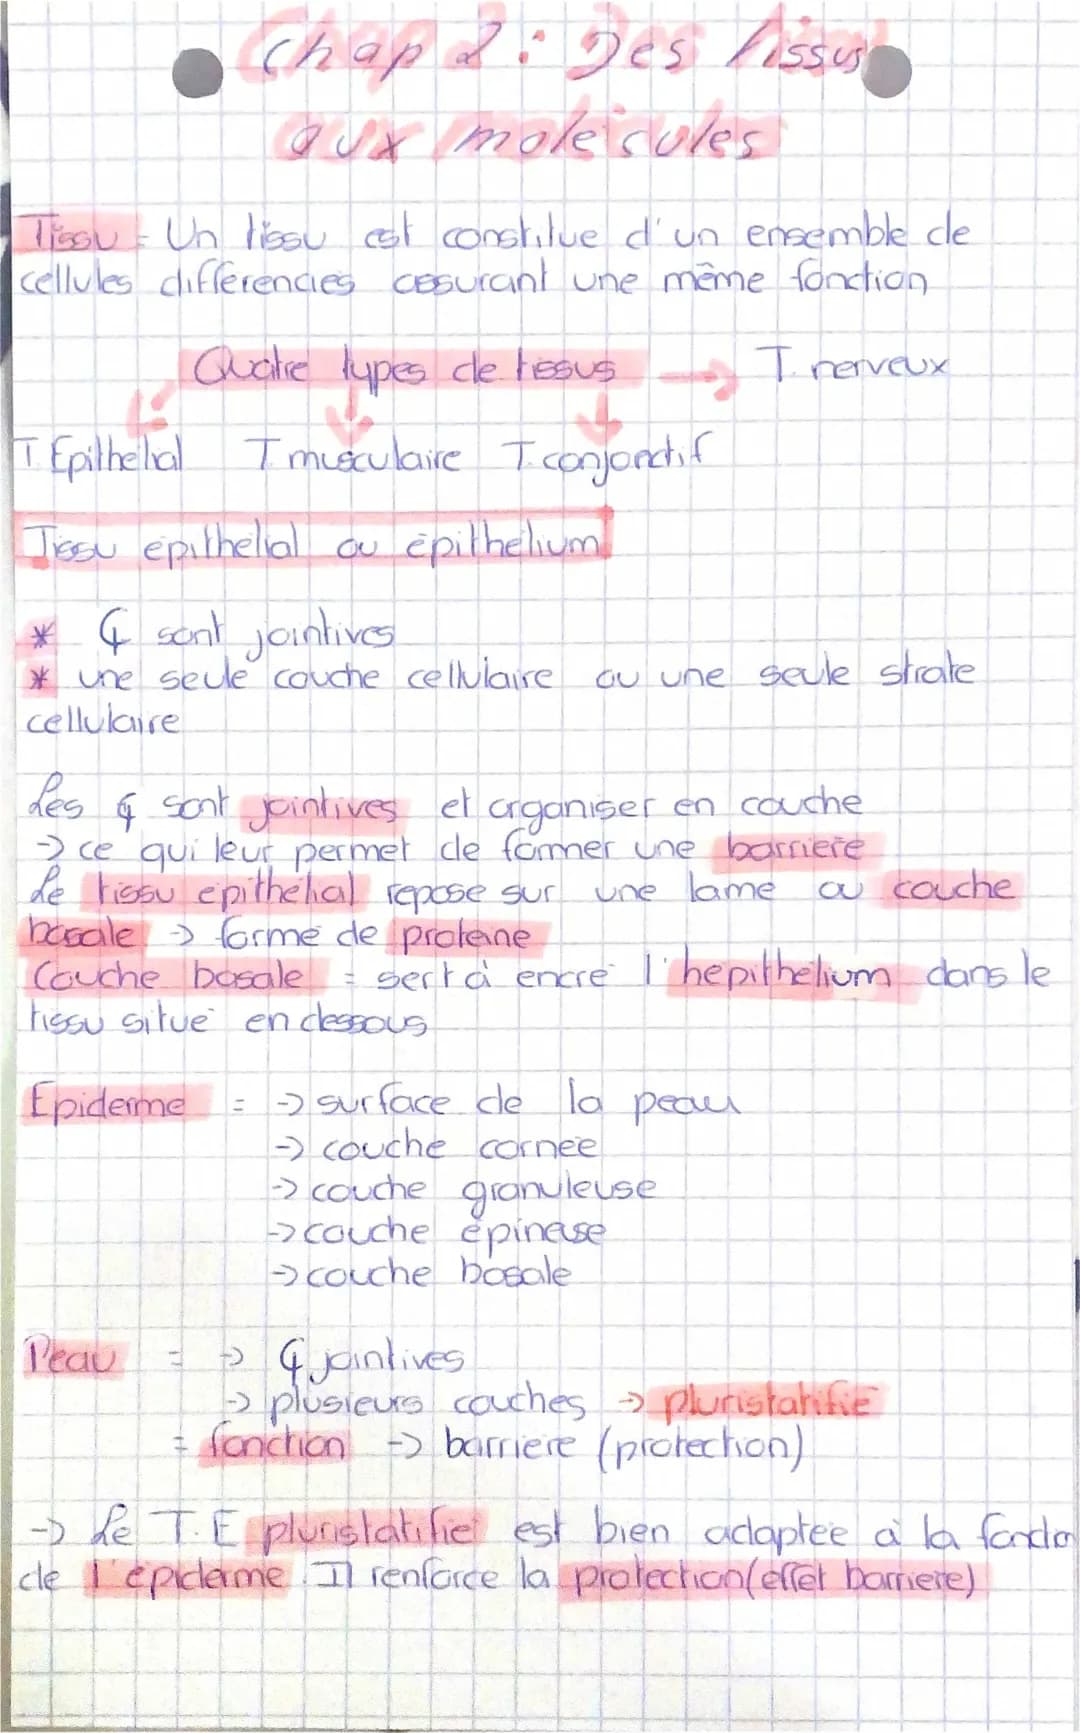 Chap 2 : Des tissus
aux molécules
Tissu = Un tissu est constitué d'un ensemble de
cellules différenciés assurant une même fonction
Quatre types de tissus → T. nerveux
T. Epithélial T musculaire T. conjonctif
Tissu épithélial ou épithélium
* ₵ sont jointives
* une seule couche cellulaire ou une seule strate
cellulaire
Les ₵ sont jointives et organiser en couche
→ ce qui leur permet de former une barrière
Le tissu épithélial repose sur une lame ou couche
basale → forme de protéine
Couche basale = sert à encré l'hépithélium dans le
tissu situé en dessous
Epiderme = → surface de la peau
→ couche cornée
→ couche granuleuse
→ couche épineuse
→ couche basale
Peau = → ₵ jointives
→ plusieurs couches → pluristatifié
= fonction → barrière (protection)
→ Le T.E pluristatifié est bien adaptée à la fonctio
de l'épiderme. Il renforce la protection (effet barrière)